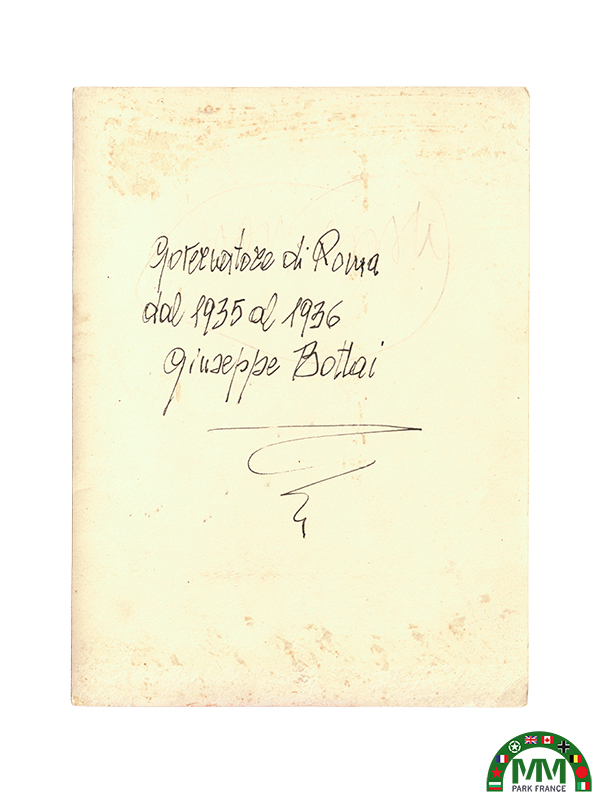 Governatore di Roma
dal 1935 al 1936
Giuseppe Bottai
MM
PARK FRANCE